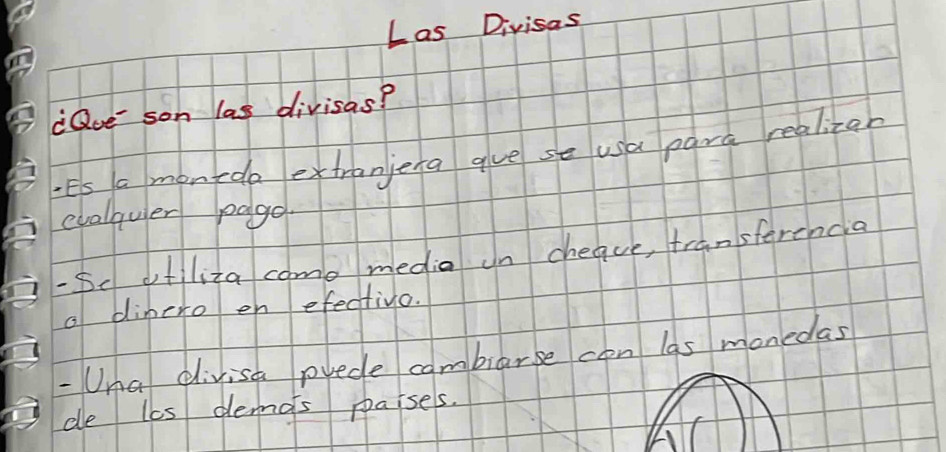 Las Divisas
¿Qué son las divisas?
-Es a moneda extranjera que se usa para realizar
cualquier pago.
-Se utiliza como medio un cheque, transferencia
o dinero en efectivo.
-Una divisa puede cambiarse con las monedas
de los demás paises.